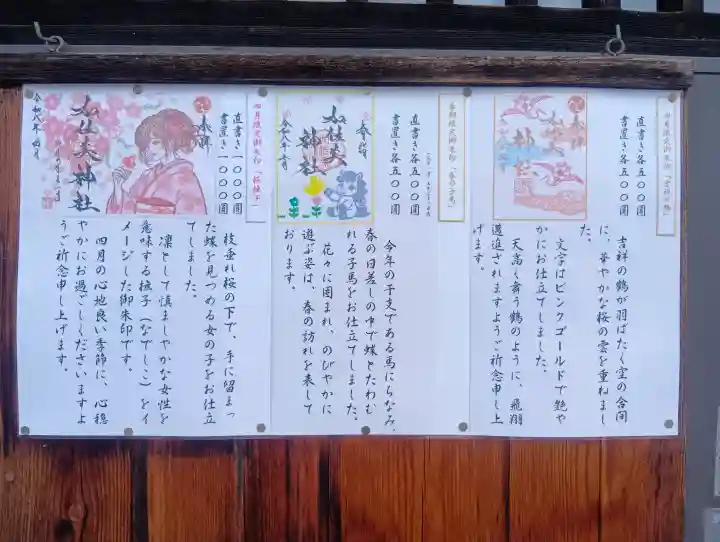 四月限定御朱印
直書き各五〇〇圓
書置き各五〇〇圓
奉拝
神社
吉祥の鶴が羽ばたく空の合間
に、華やかな桜の雲を重ねまし
た。
文字はピンクゴールドで艶や
かにお仕立てしました。
天高く舞う鶴のように、飛翔
邁進されますようご祈念申し上
げます。
春期限定御朱印
直書き各五〇〇圓
書置き各五〇〇圓
奉拝
神社
今年の干支である馬にちなみ、
春の日差しの中で蝶とたわむ
れる子馬をお仕立てしました。
花々に囲まれ、のびやかに
遊ぶ姿は、春の訪れを表して
おります。
四月限定御朱印「桜撫子」
直書一〇〇〇圓
書置き一〇〇〇圓
奉拝
神社
令和八年四月
枝垂れ桜の下で、手に留まっ
た蝶を見つめる女の子をお仕立
てしました。
凛として慎ましやかな女性を
意味する撫子(なでしこ)をイ
メージした御朱印です。
四月の心地良い季節に、心穏
やかにお過ごしくださいますよ
うご祈念申し上げます。